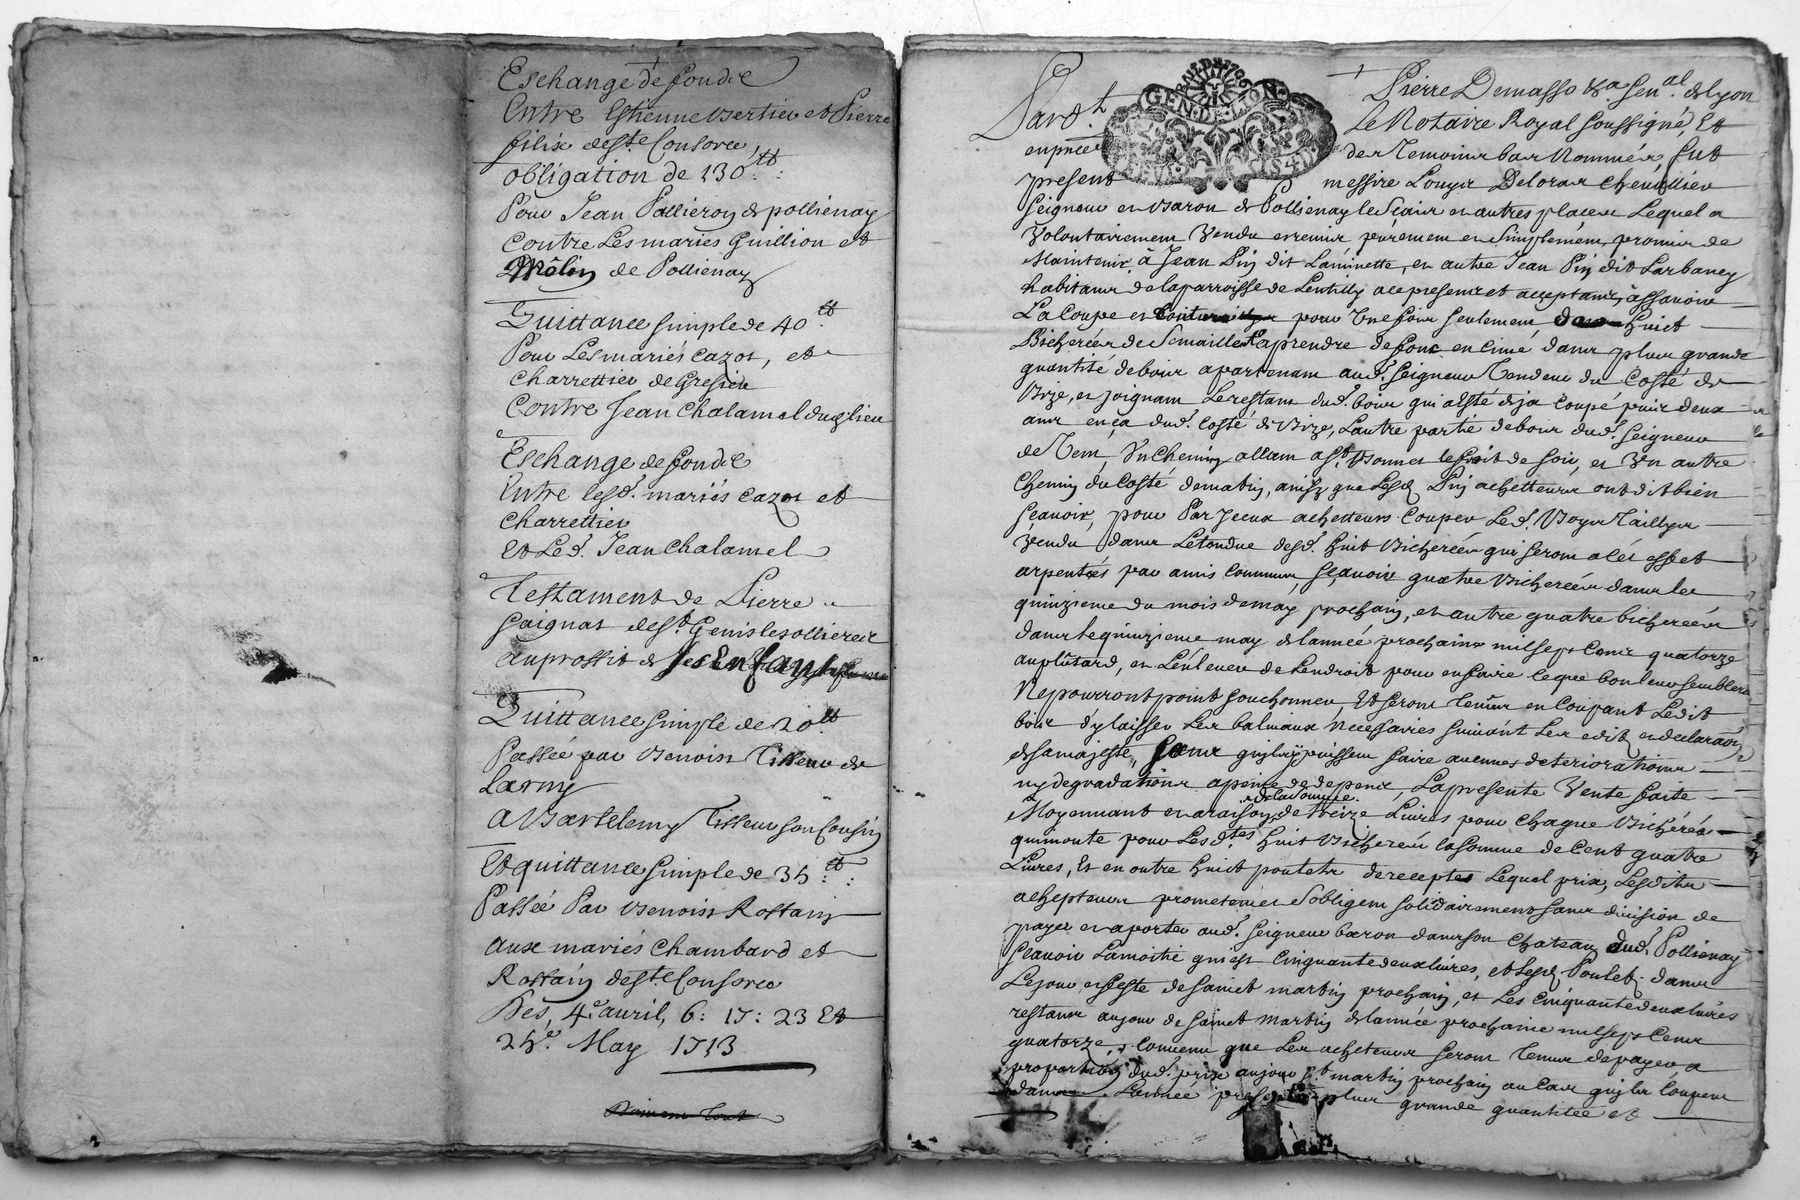 Eschange de fondz
Entre Estienne Bertier et Pierre
filix de Ste Consorce
obligation de 130 tt
Pour Jean Pallieron de pollienay
Contre Les mariés Guillion et
Molin de Pollienay
Quittance simple de 40 tt
Pour Les mariés cazot, et
charrettier de Gresieu
Contre Jean chalamel dud lieu
Eschange de fondz
Entre lesd. mariés cazot et
charrettier
Et Led. Jean chalamel
Testament de Pierre
Gaignat de St. Genis les ollieres
au proffit de ses Enfants
Quittance simple de 20 tt
Passée par Benoist Tisseur de
Larny
A Bartelemy Tisseur son Cousin
Et quittance simple de 35 tt
Passée Par Benoist Rostain
aux mariés chambard et
Rostain de Ste Consorce
Des, 4e avril, 6: 17: 23 Et
25e. May 1713
GEN. DE LYON
Pardt. Pierre Demasso en la Senal. de Lyon
Le Notaire Royal soussigné, Et
en pnce des Temoins bas Nommés, fut
present messire Louys Deloras chevallier
seigneur et Baron de Pollienay le et autres places Lequel a
Volontairement Vendu et remis purement et Simplement, promis de
Maintenir à Jean Pin dit Laminette, et autre Jean Pin dit Larbaney
habitans de la parroisse de Lentilly ace presents et acceptants, assavoir
La Coupe et pour Une fois seulement huict
Bicherées de Semaille a prendre de fonc en cime dans plus grande
quantité de bois apartenant aud. Seigneur Vendeur du Costé de
Bize, et joignant Le restant dud. bois qui a esté deja coupé puis deux
ans en ça dud. Costé de Bize, Lautre partie de bois dud. Seigneur
de Vent, Un Chemin allant a St. Bonnet le froid de soir, et Un autre
Chemin du Costé de matin, ainsy que Lesd Pin achetteurs ont dit bien
sçavoir, pour Par Jceux achetteurs Couper Led. Boys Taillys
Vendu dans Letendue desd. huit Bicherées qui seront a cet effet
arpentées par amis communs sçavoir quatre Bicherées dans le
quinzieme du mois de may prochain, et autre quatre bicherées
dans le quinzieme may de lannée prochaine mil sept Cent quatorze
au plûtard, et L'enlever de L'endroit pour en faire ce que bon leur semblera
Ne pourront point souchonner, Et seront Tenus en Coupant Ledit
bois d'y laisser Les baliveaux necessaires suivant Les edits et declarations
de sa majesté, sans quils y puissent faire aucunes deteriorations
ny degradations a peine de depens, La presente Vente faite
Moyennant et a raison de Treize Livres pour Chaque Bicherée
qui monte pour Lesdtes huit Bicherées la somme de Cent quatre
Livres, Et en outre huict poulets de receptes Lequel prix, Lesdits
achepteurs promettent et s'obligent solidairement sans division de
payer et aporter aud. Seigneur baron dans son Chateau dud. Pollienay
sçavoir La moitié qui est Cinquante deux livres, et Lesd Poulets dans
Le jour et feste de Sainct martin prochain, et Les cinquante deux livres
restans au jour de Sainct Martin de lannée prochaine mil sept Cent
quatorze, Convenu que Les acheteurs seront Tenus de payer a
proportion dud. prix au jour St martin prochain au Cas quils Coupent
dans Lannée presente plus grande quantitée et